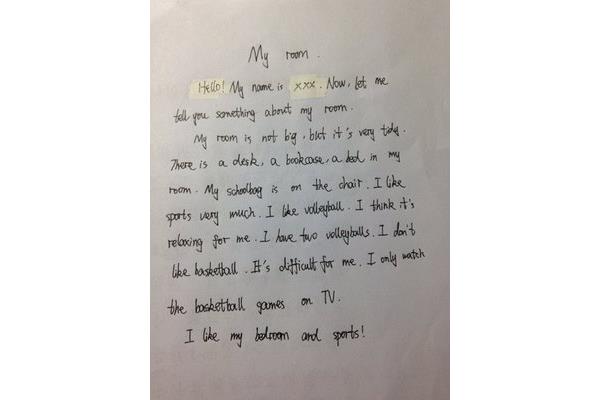 My room.
Hello! My name is xxx. Now, let me
tell you something about my room.
My room is not big, but it's very tidy.
There is a desk, a bookcase, a bed, in my
room. My schoolbag is on the chair. I like
sports very much. I like volleyball. I think it's
relaxing for me. I have two volleyballs. I don't
like basketball. It's difficult for me. I only watch
the basketball games on TV.
I like my bedroom and sports!